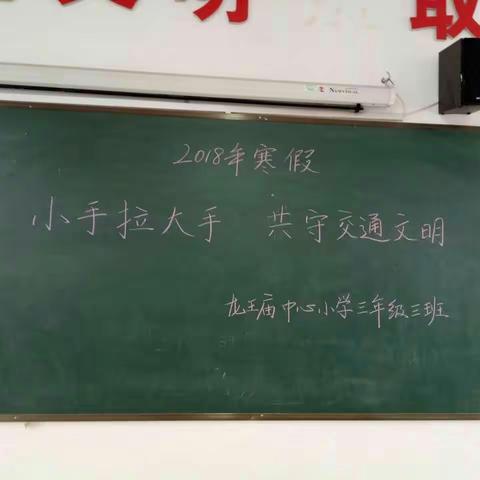 明 取
2018年寒假
小手拉大手 共守交通文明
龙王庙中心小学三年级三班